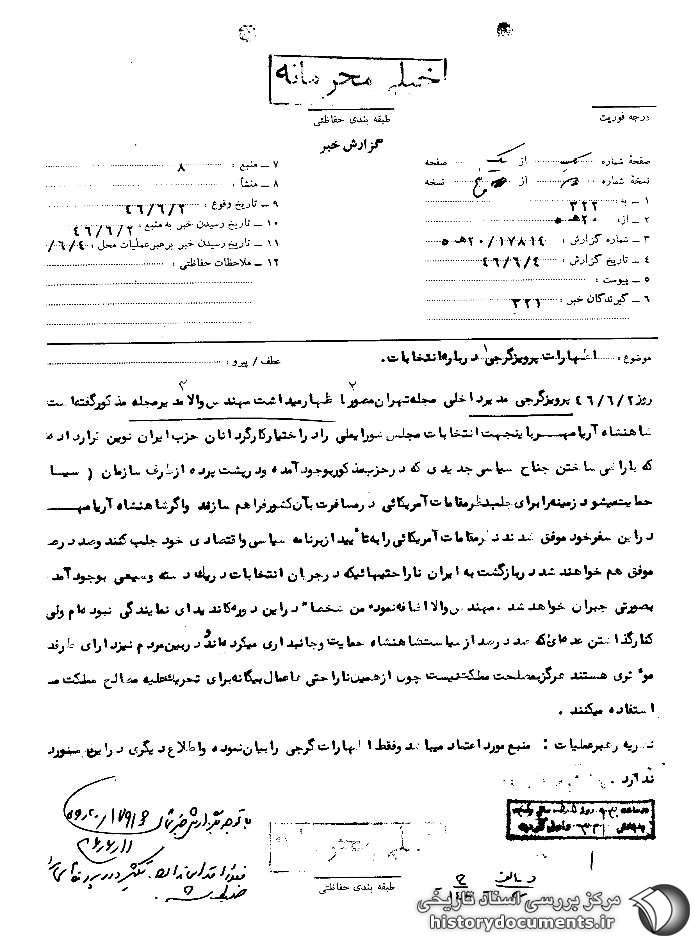 خیلی محرمانه
طبقه بندی حفاظتی
درجه فوریت
گزارش خبر
صفحهٔ شماره یک از یک صفحه
نسخهٔ شماره از پنج نسخه
۱ ــ به: ۳۲۲
۲ ــ از: ۲۰ هـ ۵
۳ ــ شماره گزارش: ۲۰/۱۷۸۱۴ هـ ۵
۴ ــ تاریخ گزارش: ۴۶/۶/۴
۵ ــ پیوست:
۶ ــ گیرندگان خبر: ۳۲۱
۷ ــ منبع: ۸
۸ ــ منشأ:
۹ ــ تاریخ وقوع: ۴۶/۶/۲
۱۰ ــ تاریخ رسیدن خبر به منبع: ۴۶/۶/۲
۱۱ ــ تاریخ رسیدن خبر برهبر عملیات محل: /۶/۴
۱۲ ــ ملاحظات حفاظتی:
موضوع: اظهارات پرویز گرجی درباره انتخابات. عطف / پیرو:
روز ۴۶/۶/۲ پرویز گرجی مدیر داخلی مجله تهران مصور اظهار میداشت مهندس والا مدیر مجله مذکور گفته است
شاهنشاه آریامهر باینجهت انتخابات مجلس شورایملی را در اختیار کارگردانان حزب ایران نوین قرار داده
که با راضی ساختن جناح سیاسی جدیدی که در حزب مذکور بوجود آمده و در پشت پرده از طرف سازمان ( سیا
حمایت میشود زمینه را برای جلب نظر مقامات آمریکائی در مسافرت بآن کشور فراهم سازند واگر شاهنشاه آریامهر
در این سفر خود موفق شدند نظر مقامات آمریکائی را به تأیید از برنامه سیاسی واقتصادی خود جلب کنند وصد درصد
موفق هم خواهند شد در بازگشت به ایران ناراحتیهائیکه در جریان انتخابات در یک دسته وسیعی بوجود آمده
بصورتی جبران خواهد شد. مهندس والا اضافه نموده من شخصاً در این دوره کاندیدای نمایندگی نبوده ام ولی
کنار گذاشتن عده ای که صد درصد از سیاست شاهنشاه حمایت وجانبداری میکرده اند و در بین مردم نیز دارای طرفد
موثری هستند هرگز بمصلحت مملکت نیست چون از همین ناراحتی ها عمال بیگانه برای تحریک علیه مصالح مملکت
استفاده میکنند .
نظریه رهبر عملیات : منبع مورد اعتماد میباشد وفقط اظهارات گرجی را بیان نموده واطلاع دیگری در این مورد
ندارد .
با توجه بگزارش خبر شماره
طبقه بندی حفاظتی
مرکز بررسی اسناد تاریخی
historydocuments.ir